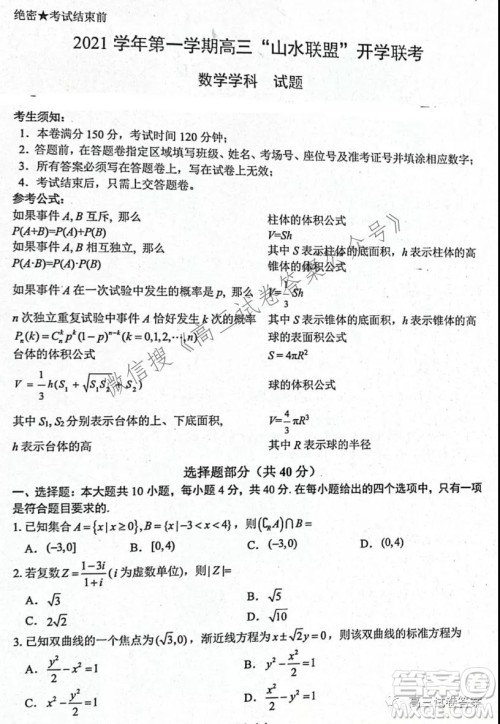 绝密★考试结束前
2021 学年第一学期高三“山水联盟”开学联考
数学学科 试题
考生须知：
1．本卷满分 150 分，考试时间 120 分钟；
2．答题前，在答题卷指定区域填写班级、姓名、考场号、座位号及准考证号并填涂相应数字；
3．所有答案必须写在答题卷上，写在试卷上无效；
4．考试结束后，只需上交答题卷。
参考公式：
如果事件 A, B 互斥, 那么 柱体的体积公式
P(A+B)=P(A)+P(B) V=Sh
如果事件 A, B 相互独立, 那么 其中 S 表示柱体的底面积, h 表示柱体的高
P(A·B)=P(A)·P(B) 锥体的体积公式
如果事件 A 在一次试验中发生的概率是 p, 那么 V=1/3 Sh
n 次独立重复试验中事件 A 恰好发生 k 次的概率 其中 S 表示锥体的底面积, h 表示锥体的高
Pₙ(k)=Cₙᵏpᵏ(1-p)ⁿ⁻ᵏ(k=0,1,2,⋯,n) 球的表面积公式
台体的体积公式 S=4πR²
V=1/3 h(S₁+√(S₁S₂)+S₂) 球的体积公式
其中 S₁, S₂ 分别表示台体的上、下底面积, V=4/3 πR³
h 表示台体的高 其中 R 表示球的半径
选择题部分（共 40 分）
一、选择题：本大题共 10 小题，每小题 4 分，共 40 分. 在每小题给出的四个选项中，只有一项
是符合题目要求的.
1. 已知集合 A={x|x≥0}, B={x|-3<x<4}，则(∁ᴿA)∩B=
A．(-3,0] B．[0,4) C．(-3,0) D．(0,4)
2. 若复数 Z=(1-3i)/(1+i) (i 为虚数单位)，则|Z|=
A．√3 B．2 C．√5 D．√6
3. 已知双曲线的一个焦点为(√3,0)，渐近线方程为 x±√2y=0，则该双曲线的标准方程为
A．y²/2-x²=1 B．y²-x²/2=1
C．x²/2-y²=1 D．x²-y²/2=1
微信搜《高三试卷答案公众号》
高三试卷答案